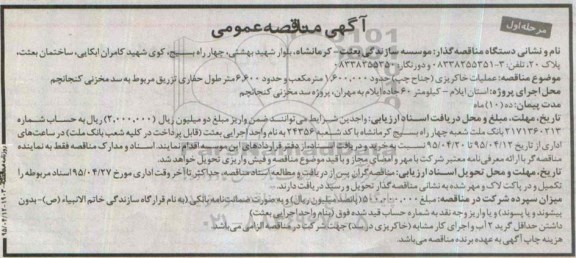 مرحله اول
آگهی مناقصه عمومی
نام و نشانی دستگاه مناقصه گذار: موسسه سازندگی بعثت - کرمانشاه، بلوار شهید بهشتی، چهار راه بسیج، کوی شهید کامران ابکایی، ساختمان بعثت،
پلاک ۲۰، تلفن: ۳-۰۸۳۳۸۲۵۵۳۵۱ و دورنگار: ۰۸۳۳۸۲۵۵۳۵۰
موضوع مناقصه: عملیات خاکریزی (جناح چپ) حدود ۶۰۰,۰۰۰ (مترمکعب و حدود ۶,۶۰۰ متر طول حفاری تزریق مربوط به سد مخزنی کنجانچم
محل اجرای پروژه: استان ایلام - کیلومتر ۶۰ جاده ایلام به مهران، پروژه سد مخزنی کنجانچم
مدت پیمان: ده (۱۰) ماه
تاریخ، مهلت، مبلغ و محل دریافت اسناد ارزیابی: واجدین شرایط می توانند ضمن واریز مبلغ دو میلیون ریال (۲,۰۰۰,۰۰۰) ریال به حساب شماره
۲۱۷۱۳۶۰۲۱۳ بانک ملت شعبه چهار راه بسیج کرمانشاه با کد شعبه ۲۴۳۵۶ به نام واحد اجرایی بعثت (قابل پرداخت در کلیه شعب بانک ملت) در ساعت های
اداری از تاریخ ۹۵/۰۴/۱۲ تا ۹۵/۰۴/۲۰ نسبت به خرید و دریافت اسناد از دفتر قراردادهای این موسسه اقدام نمایند. اسناد و مدارک مناقصه فقط به نماینده
مناقصه گر با ارائه معرفی نامه معتبر شرکت با مهر و امضای مجاز و با قید موضوع مناقصه و فیش واریزی تحویل خواهد شد.
تاریخ، مهلت و محل تحویل اسناد ارزیابی: مناقصه گران پس از دریافت و مطالعه اسناد مناقصه، حداکثر تا آخر وقت اداری مورخ ۹۵/۰۴/۲۷ اسناد مربوطه را
تکمیل و در پاکت لاک و مهر شده به نشانی مناقصه گذار تحویل و رسید دریافت دارند...
میزان سپرده شرکت در مناقصه: مبلغ ۵۰۰,۰۰۰,۰۰۰ (پانصد میلیون ریال) و به صورت ضمانت نامه بانکی (به نام قرارگاه سازندگی خاتم الانبیاء (ص)- بدون
پیشوند و یا پسوند) و یا واریز وجه نقد به شماره حساب قید شده فوق (بنام واحد اجرایی بعثت)
داشتن حداقل گرید ۲ آب و اجرای کار مشابه (خاکریزی در سد) جهت شرکت در مناقصه الزامی می باشد.
هزینه چاپ آگهی به عهده برنده مناقصه می باشد.